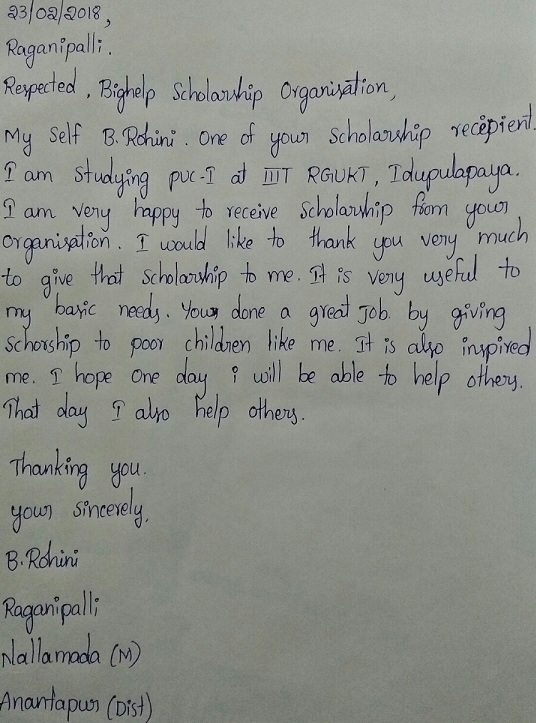 23/02/2018,
Raganipalli.
Respected, Bighelp Scholarship Organisation,
My Self B. Rohini. One of your Scholarship recepient.
I am Studying PUC-I at IIIT RGUKT, Idupulapaya.
I am very happy to receive Scholarship from your
organisation. I would like to thank you very much
to give that Scholarship to me. It is very useful to
my basic needs. Your done a great Job. by giving
Schorship to poor children like me. It is also inspired
me. I hope One day i will be able to help others.
That day I also help others.
Thanking you.
your Sincerely,
B. Rohini
Raganipalli
Nallamada (M)
Anantapur (Dist)